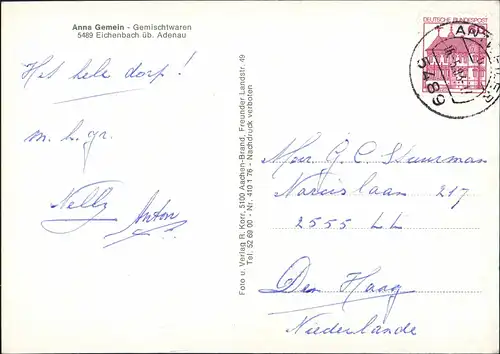 Anna Gemein - Gemischtwaren
5489 Eichenbach üb. Adenau
Het hele dorp!
m. h. gr.
Nelly
Anton
Foto u. Verlag R. Korr, 5100 Aachen-Brand, Freunder Landstr. 49
Tel. 52 68 00 - Nr. 410 1 76 - Nachdruck verboten
DEUTSCHE BUNDESPOST
5489
Mevr. G. C. Stuurman
Narcislaan 217
2555 LL
Den Haag
Niederlande